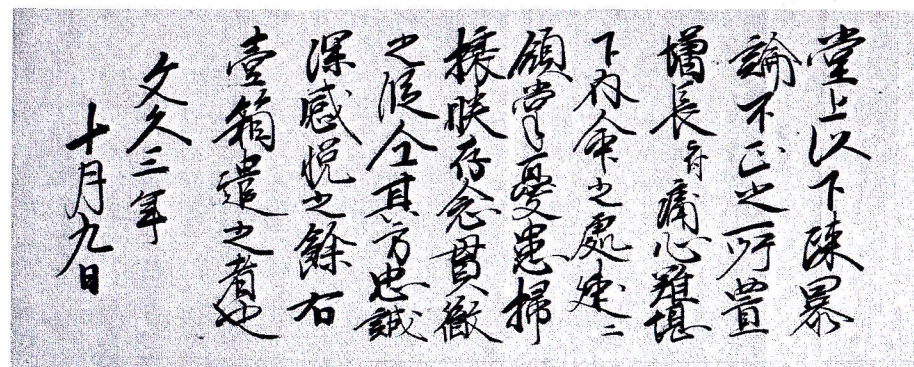 堂上以下陳暴
論不正之所置
増長付痛心難堪
下内命之処速ニ
領掌憂患掃
攘朕存念貫徹
之段全其方忠誠
深感悦之餘右
壱箱遣之者也
文久三年
十月九日